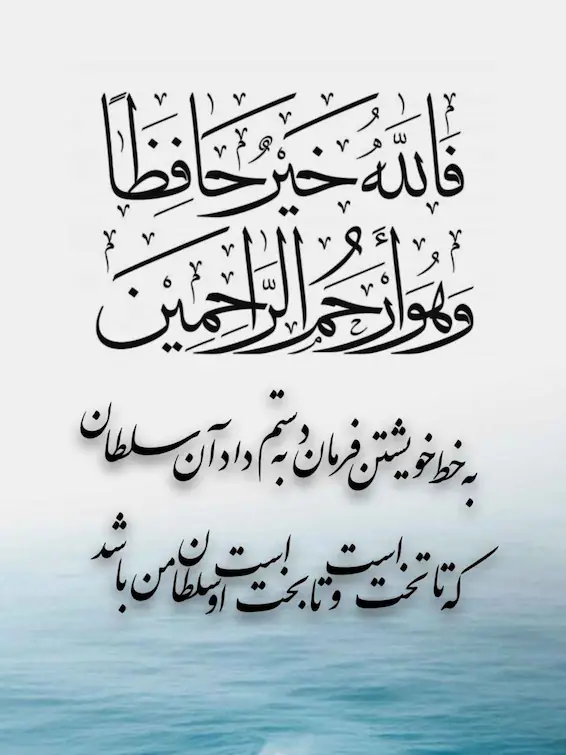 فَاللَّهُ خَيْرٌ حَافِظًا
وَهُوَ أَرْحَمُ الرَّاحِمِينَ
به خط خویشتن فرمان به دستم داد آن سلطان
که تا تخت است و تا بخت است او سلطان من باشد